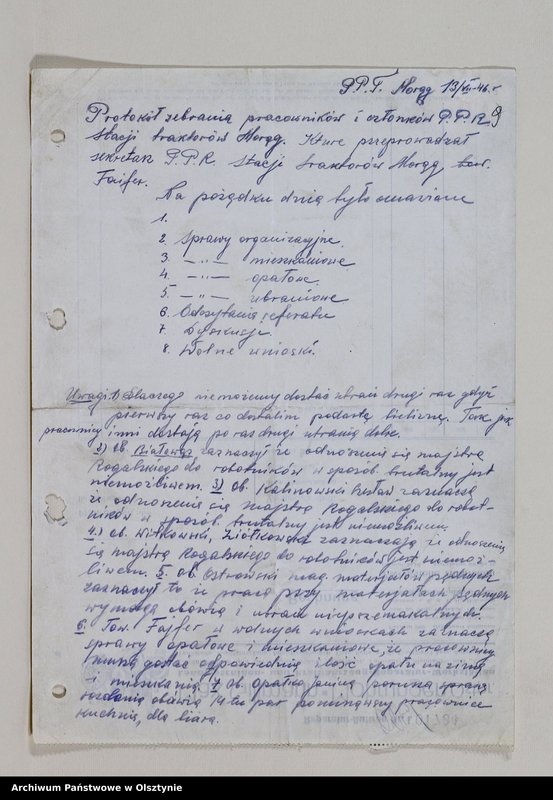 P.P.T. Morąg 13/XII-46 r
9
Protokół zebrania pracowników i członków P.P.R.
Stacji traktorów Morąg. Kture przeprowadzał
sekretarz P.P.R. Stacji traktorów Morąg tow.
Fajfer.
Na porządku dnia było omawiane
1.
2. Sprawy organizacyjne.
3. —"— mieszkaniowe
4. —"— opałowe.
5. —"— ubraniowe
6. Odczytania referatu
7. Dyskusje.
8. Wolne wnioski.
Uwagi. 1) Dlaczego niemożemy dostać ubrań drugi raz gdyż
pierwszy raz co dostalim podartą bieliznę. Tak jak
pracownicy inni dostają po raz drugi ubrania dobre.
2) ob. Białowąs zaznaczył że odnoszenie się majstra
Rogalskiego do robotników w sposób brutalny jest
niemożliwem. 3) Ob. Kalinowski zaznacza
że odnoszenie się majstra Rogalskiego do robot-
ników w sposób brutalny jest niemożliwem.
4.) ob. Witkowski, Ziółkowski zaznaczają że odnoszenie
się majstra Rogalskiego do robotników jest niemoż-
liwem. 5. ob. Ostrowski mag. materjałów pędnych
zaznaczył to że praca przy materjałach pędnych
wymaga obówia i ubrań nieprzemakalnych.
6. Tow. Fajfer w wolnych wnioskach zaznacza
sprawy opałowe i mieszkaniowe, że pracownicy
muszą dostać odpowiednią ilość opału na zimę
i mieszkania 7 ob. Opałka porusza sprawę
rozdania obówia 14-tu par pominąwszy pracownice
kuchnia, dla biura.
Archiwum Państwowe w Olsztynie